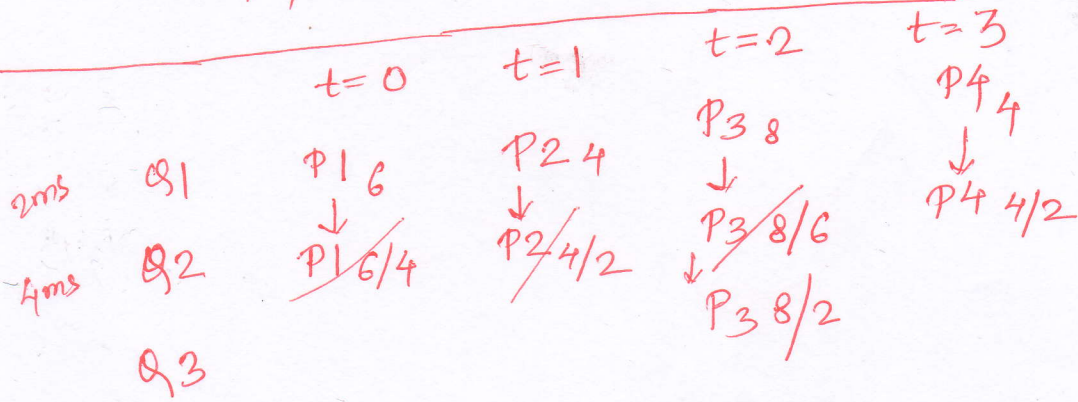 t=0 t=1 t=2 t=3
2ms Q1 P1 6 P2 4 P3 8 P4 4
↓ ↓ ↓ ↓
4ms Q2 P1 6/4 P2 4/2 P3 8/6 P4 4/2
↓
P3 8/2
Q3